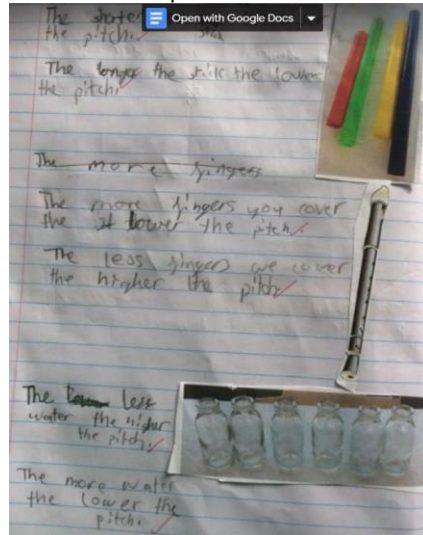 Open with Google Docs
The shorter
the pitch. stick
The longer the stick the lower
the pitch.
The more fingers
The more fingers you cover
the lower the pitch
The less fingers we cover
the higher the pitch
The less
water the higher
the pitch.
The more water
the lower the
pitch.